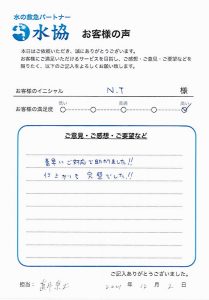 水の救急パートナー
水協 お客様の声
本日はご依頼いただき、誠にありがとうございます。
お客様にご満足いただけるサービスを目指し、ご感想・ご意見・ご要望などを
賜りたく、以下のご記入をよろしくお願い致します。
お客様のイニシャル N.T 様
お客様の満足度 低い 普通 高い
ご意見・ご感想・ご要望など
素早いご対応で助かりました!!
仕上がりも完璧でした!!
ご記入ありがとうございました。
担当: 12月2日